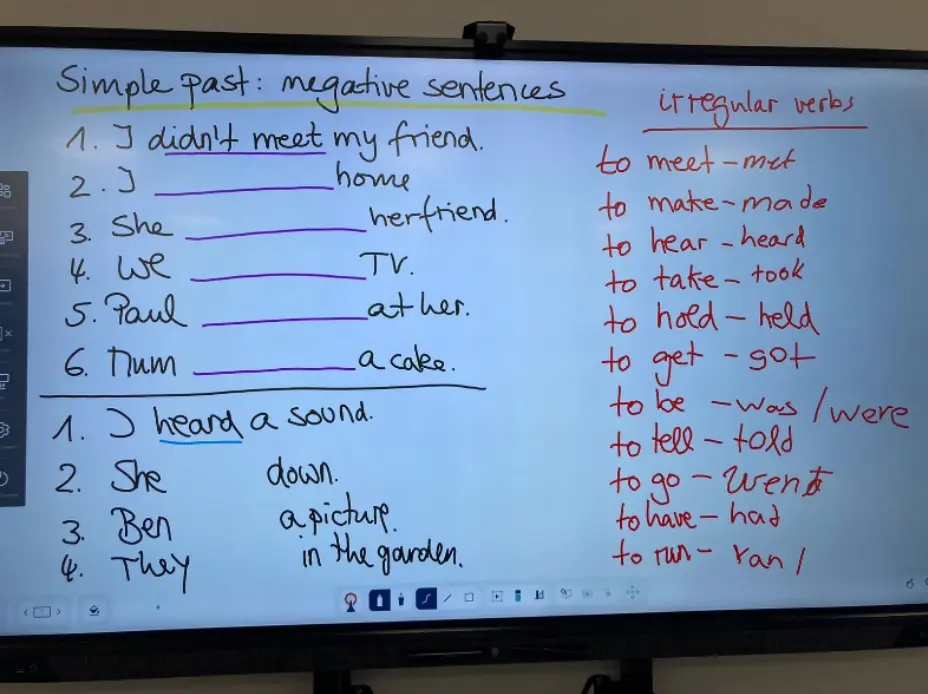 Simple past: negative sentences
1. I didn't meet my friend.
2. I ____________ home
3. She ____________ her friend.
4. We ____________ TV.
5. Paul ____________ at her.
6. Mum ____________ a cake.
1. I heard a sound.
2. She down.
3. Ben a picture.
4. They in the garden.
irregular verbs
to meet - met
to make - made
to hear - heard
to take - took
to hold - held
to get - got
to be - was / were
to tell - told
to go - went
to have - had
to run - ran /